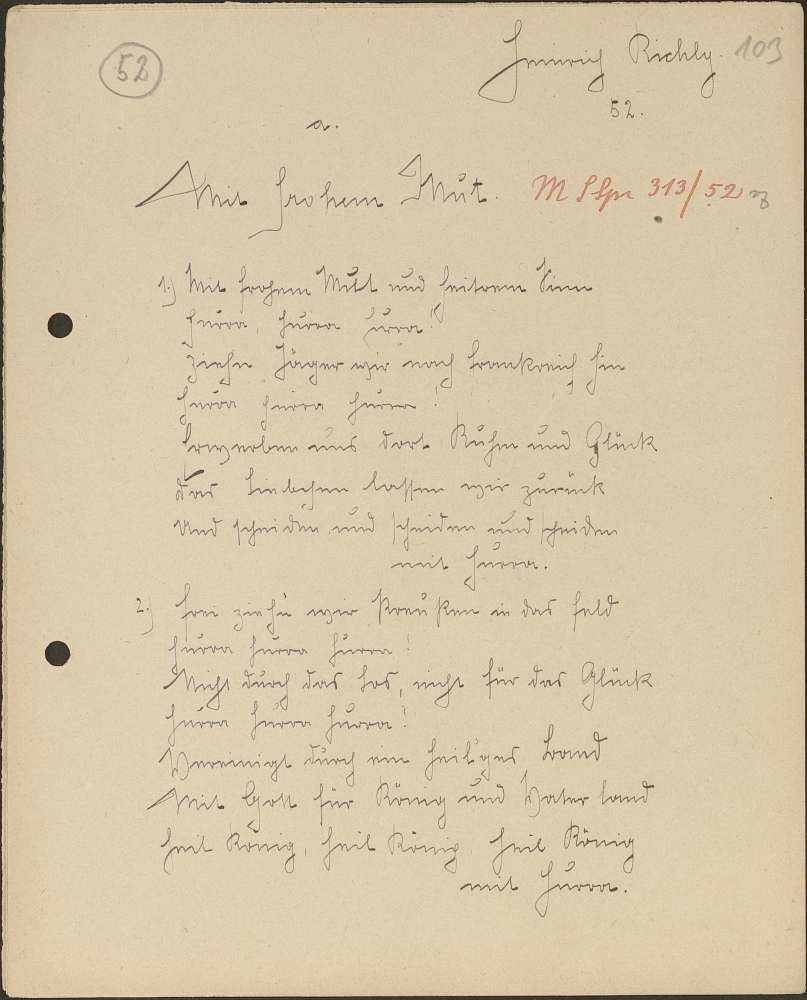 52
Heinrich Richly. 103
52.
a.
Mit frohem Mut. M S Spr 313/52
1.) Mit frohem Mut und heitrem Sinn
hurra, hurra hurra!
ziehn Jäger wir nach Frankreich hin
hurra hurra hurra!
Erwerben uns dort Ruhm und Glück
das Liebchen lassen wir zurück
und scheiden und scheiden und scheiden
mit hurra.
2.) Frei ziehn wir Preußen in das Feld
hurra hurra hurra!
Nicht durch das Los, nicht für das Glück
hurra hurra hurra!
Vereinigt durch ein heil'ges Band
Mit Gott für König und Vaterland
heil König, heil König, heil König
mit hurra.